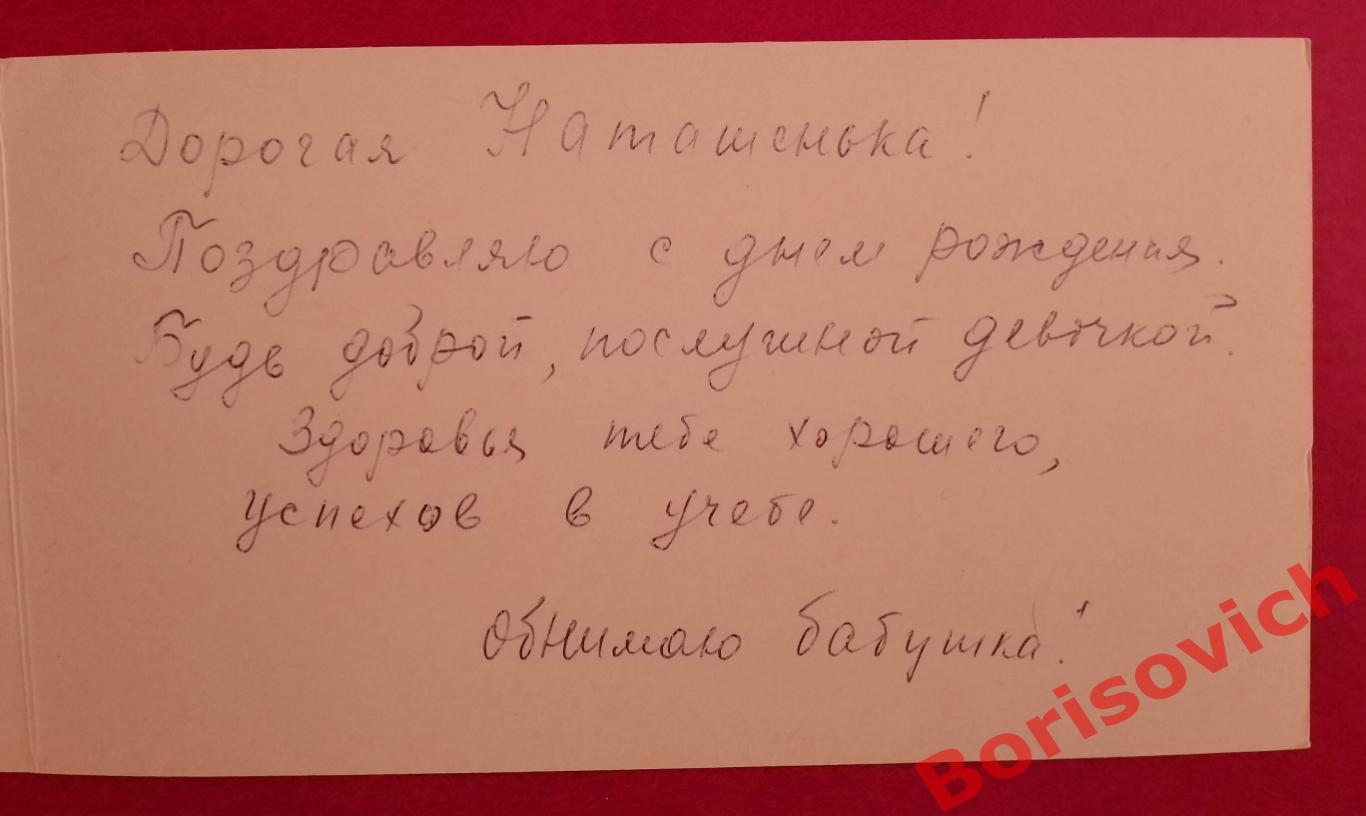 Дорогая Наташенька!
Поздравляю с днем рождения.
Будь доброй, послушной девочкой.
Здоровья тебе хорошего,
успехов в учебе.
Обнимаю бабушка!
Borisovich